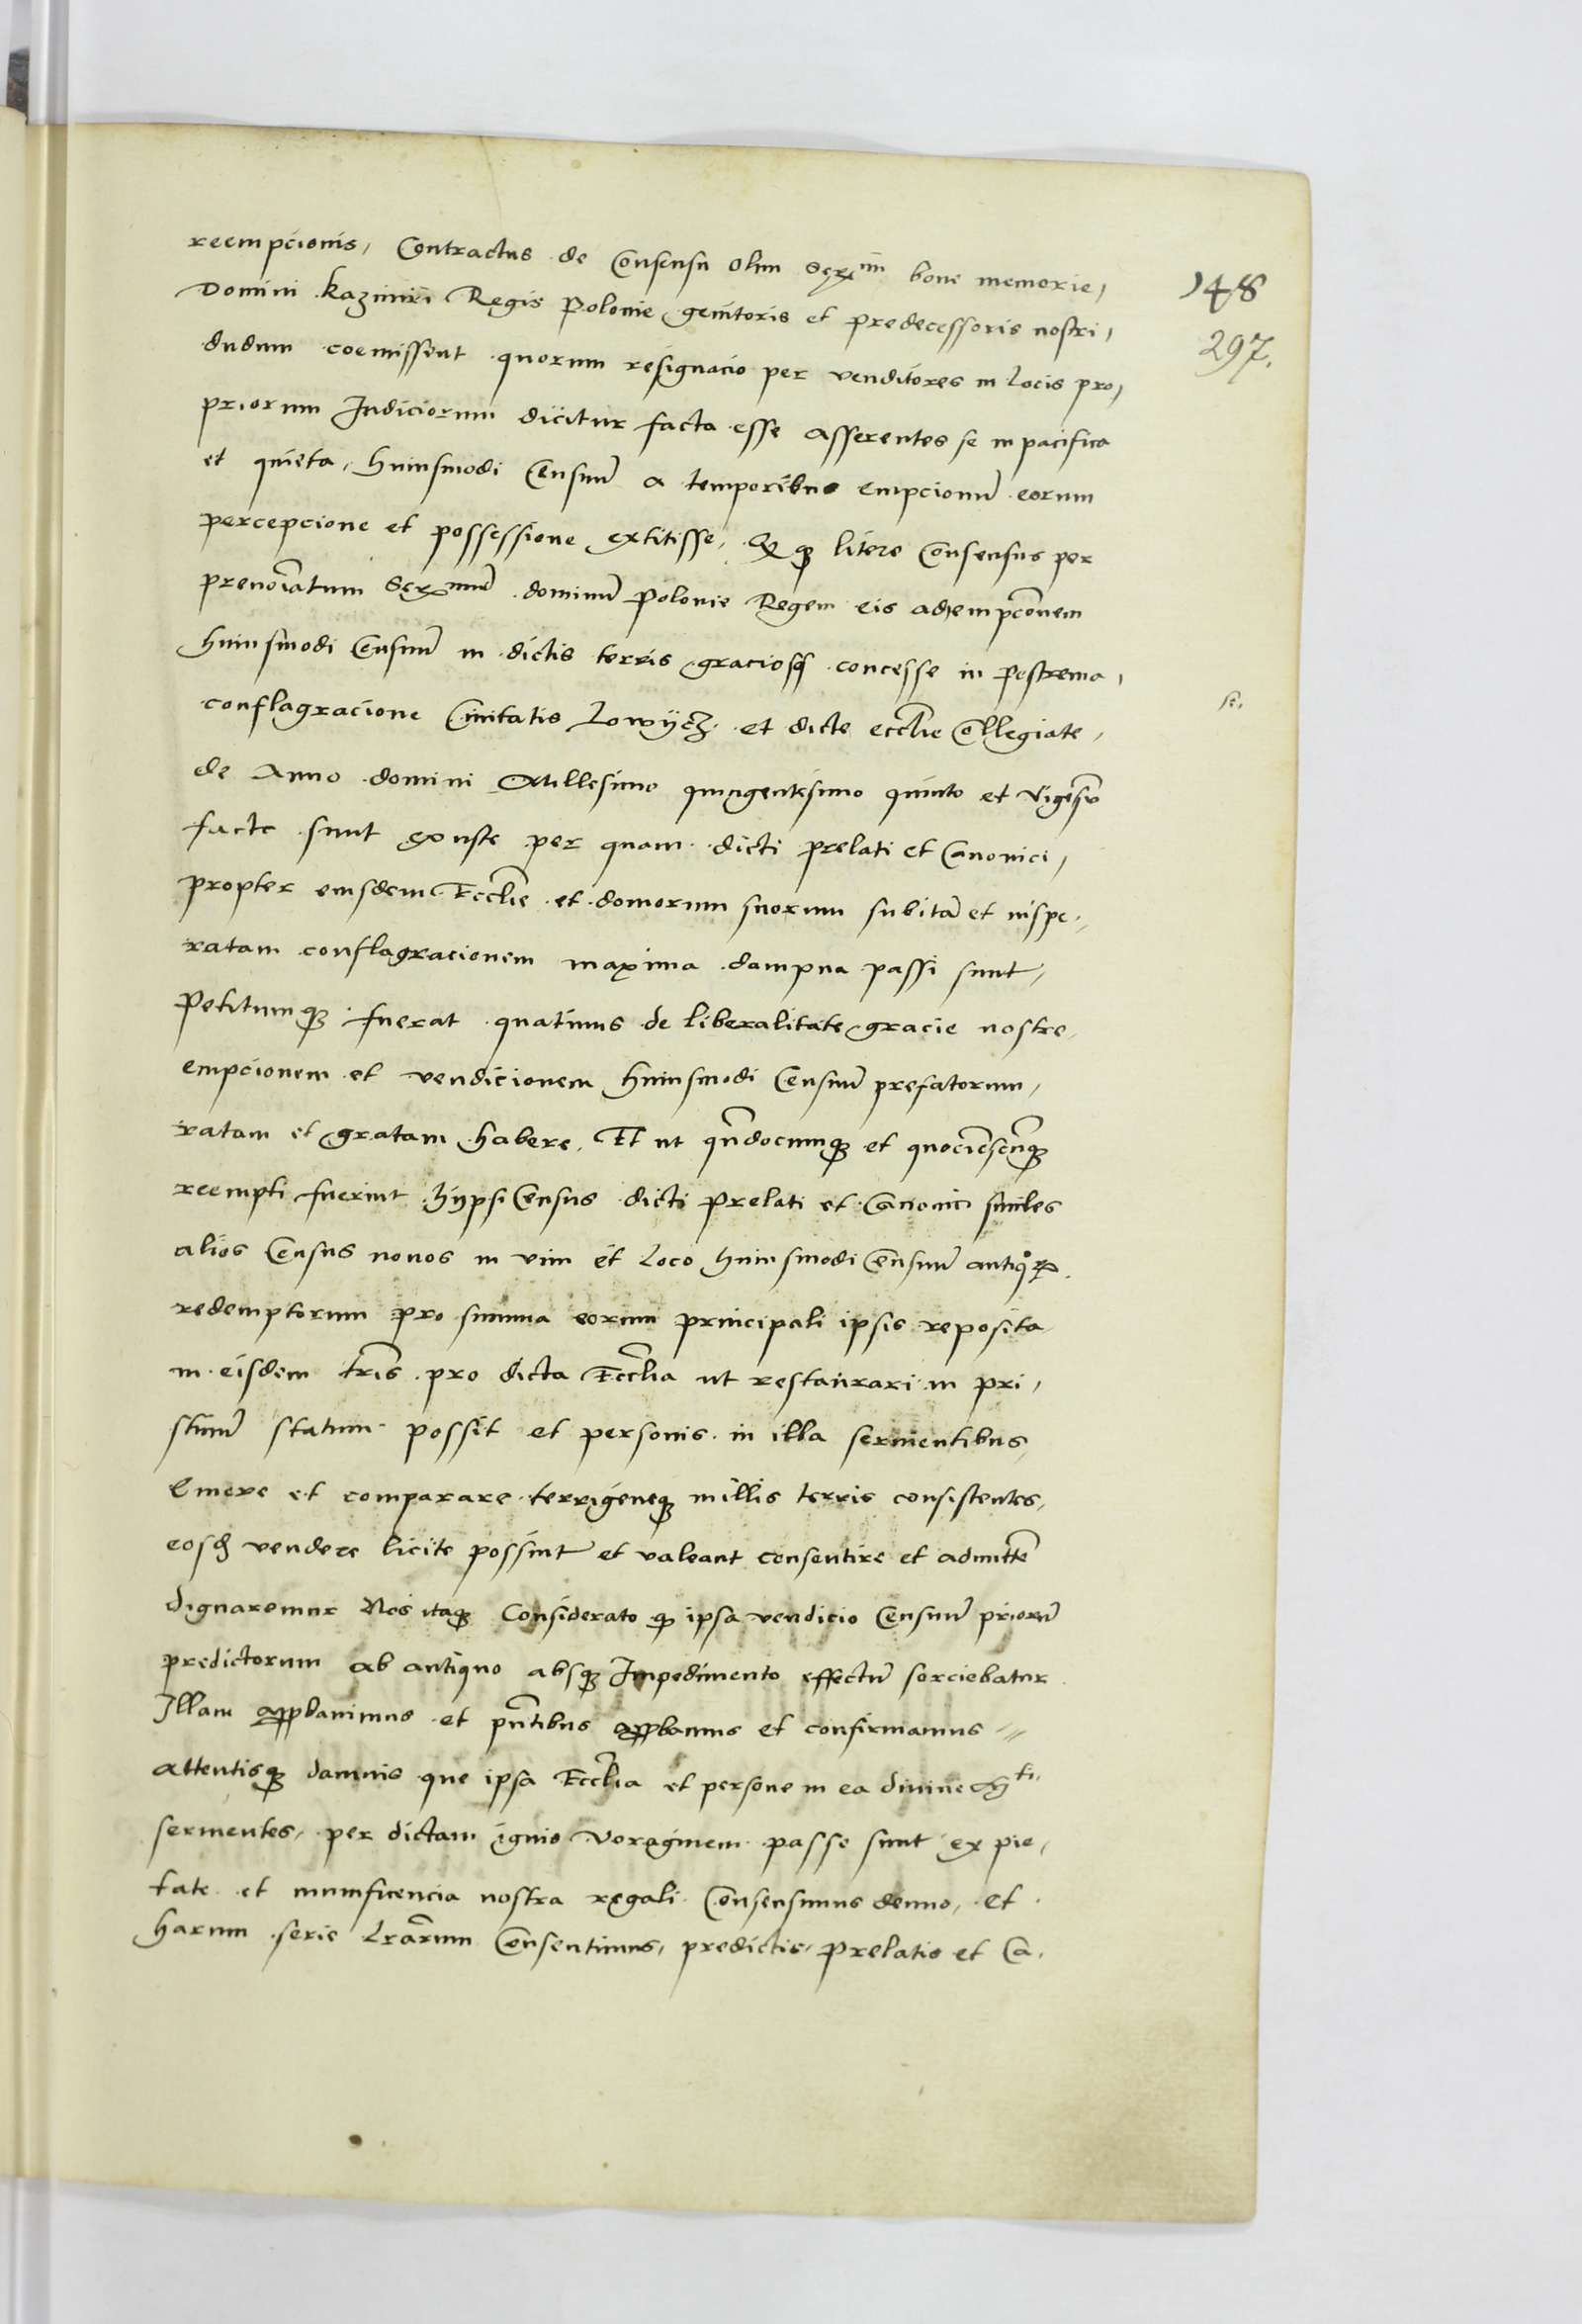 148
297.
reempcionis, Contractus de Consensu olim Serᵐⁱ bone memorie,
Domini Kazimiri Regis Polonie genitoris et predecessoris nostri,
dudum coemissent quorum resignacio per venditores in locis pro,
priorum Judiciorum dicitur facta esse asserentes se in pacifica
et quieta, huiusmodi Censuū a temporibus empcionū eorum
percepcione et possessione extitisse, Qꝫ litere Consensus per
prenoīatum Serᵐᵘ̄ dominū Polonie Regem eis ad reempcōnem
huiusmodi Censuū in dictis terris graciosę concesse in Postrema,
se,
conflagracione Ciuitatis Lowÿcz et dicte eccłie Collegiate,
de Anno domini Millesimo quingentesimo quinto et vigesīo
facte sunt exuste per quam dicti prelati et Canonici,
propter eiusdem Eccłie et domorum suorum subitā et inspe,
ratam conflagracionem maxima dampna passi sunt,
Petitumqꝫ fuerat quatinus de liberalitate gracie nostre,
empcionem et vendicionem huiusmodi Censuū prefatorum,
ratam et gratam habere, Et ut qn̄documqꝫ et quociēscūqꝫ
reempti fuerint hÿpsi Census dicti prelati et Canonici similes
alios Census nouos in vim et loco huiusmodi Censuū antiqͦꝝ
redemptorum pro summa eorum principali ipsis reposita
in eisdem tr̄is pro dicta Eccłia ut restaurari in pri,
stinū statum possit et personis in illa seruientibus,
Emere et comparare terrigeneqꝫ in illis terris consistentes,
eosđ vendere licite possint et valeant consentire et admitte͂
dignaremur Nos itaqꝫ Considerato qꝫ ipsa vendicio Censuū priorū
predictorum ab antiquo absqꝫ Impedimento effectū sorciebatur
Illam apꝓbauimus et pn̄tibus apꝓbamus et confirmamus
attentisqꝫ damnis que ipsa Eccłia et persone in ea diuine Mᵗⁱ
seruientes, per dictam ignis voraginem passe sunt ex pie,
tate et munificencia nostra regali Consensimus denuo, et
harum serie Lrārum Consentimus, predictis, prelatis et Ca,